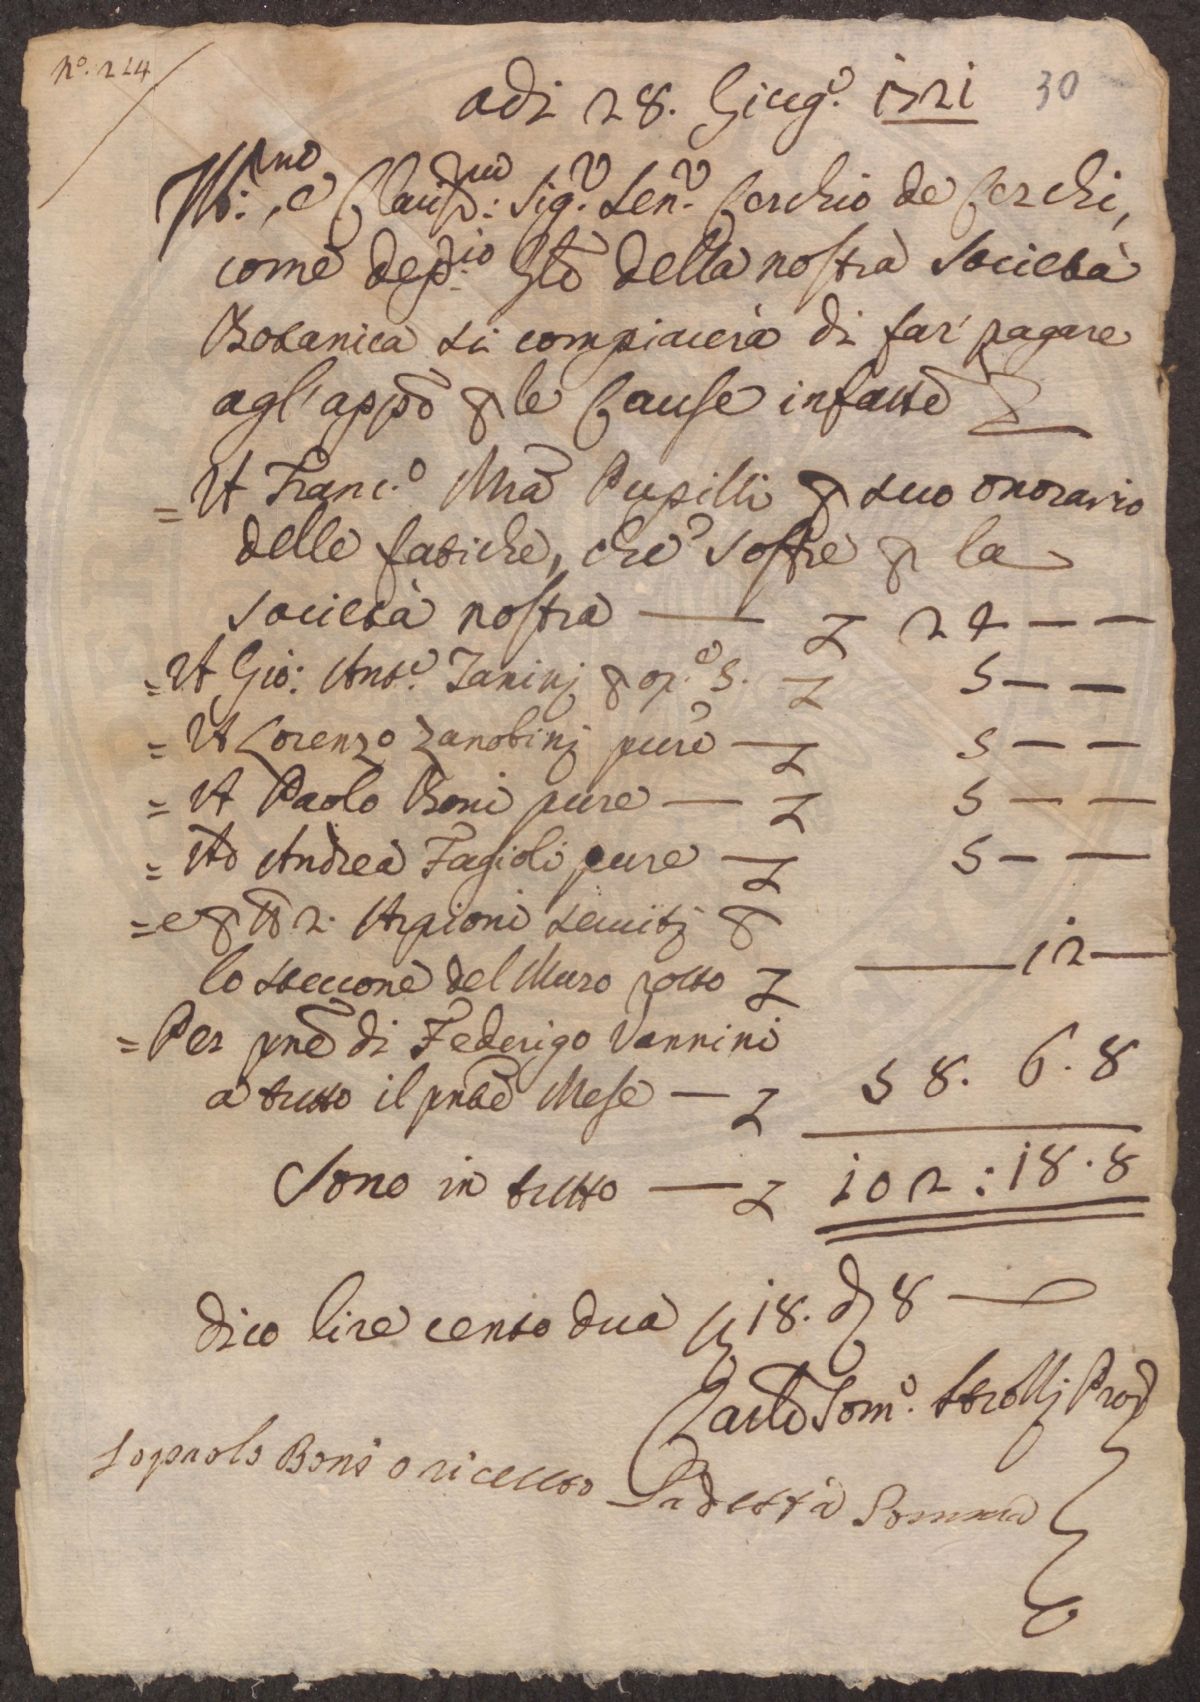 N.o 214
30
adi 28. Giug.o 1721
Ill:mo, e Clariss:mo Sig.r Sen.r Cerchio de Cerchi,
come dep.rio Glē della nostra Società
Botanica si compiacerà di far' pagare
agl'appō p le Cause infatte
= A Franc.o Mrā Pupilli p suo onorario
delle fatiche, che soffre p la
Società nostra — L 24 — —
= A Gio: Ant.o Zaninj p op.e 5. — L 5 — —
= A Lorenzo Zanobinj pure — L 5 — —
= A Paolo Boni pure — L 5 — —
= Ad Andrea Fagioli pure — L 5 — —
= e p 2. Arpioni servitj p
lo steccone del Muro rotto L — 12 —
= Per pnē di Federigo Vannini
a tutto il pntē Mese — L 58. 6. 8
Sono in tutto — L 102 : 18. 8
dico lire cento dua s 18. d 8 —
Carlo Tom.o Strozzj Prōd
Io paolo Boni o riceuto la detta Somma